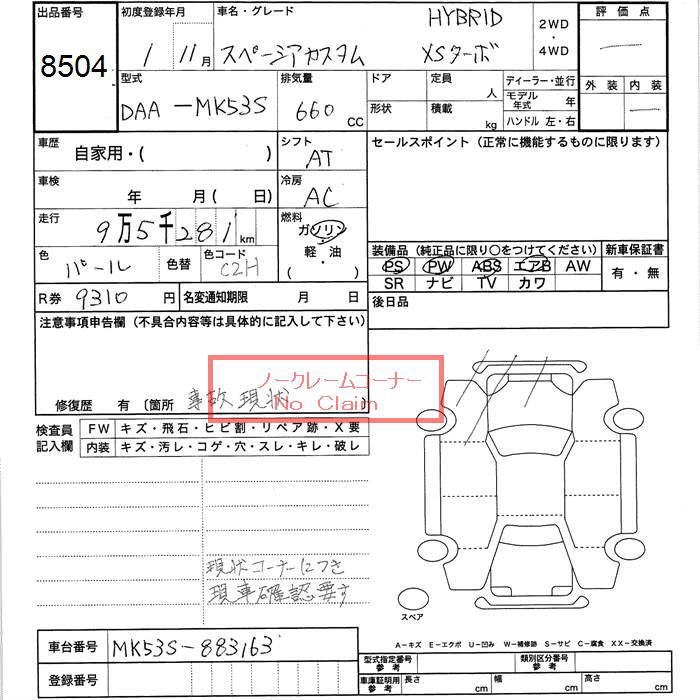 出品番号
8504
初度登録年月
1 11月
車名・グレード
スペーシアカスタム
HYBRID
XSターボ
2WD
・
4WD
評価点
外装 内装
型式
DAA-MK53S
排気量
660 CC
ドア
形状
定員 人
積載 kg
ディーラー・並行
モデル年式 年
ハンドル 左・右
車歴
自家用・( )
シフト
AT
セールスポイント (正常に機能するものに限ります)
車検
年 月 ( 日)
冷房
AC
走行
9万5千281km
燃料
ガソリン
軽・油
( ・ )
色
パール
色替
色コード
C2H
装備品 (純正品に限り○をつけてください)
新車保証書
PS PW ABS エアB AW
SR ナビ TV カワ
有・無
R券 9310 円
名変通知期限 月 日
後日品
注意事項申告欄 (不具合内容等は具体的に記入して下さい)
ノークレームコーナー
No Claim
修復歴 有 〔箇所 事故現状
検査員
記入欄
FW キズ・飛石・ヒビ割・リペア跡・X要
内装 キズ・汚レ・コゲ・穴・スレ・キレ・破レ
現状コーナーにつき
現車確認要す
スペア
A-キズ E-エクボ U-凹み W-補修跡 S-サビ C-腐食 XX-交換済
車台番号 MK53S-883163
登録番号
型式指定番号
参考
類別区分番号
参考
車庫証明用
参考
長さ cm
幅 cm
高さ cm